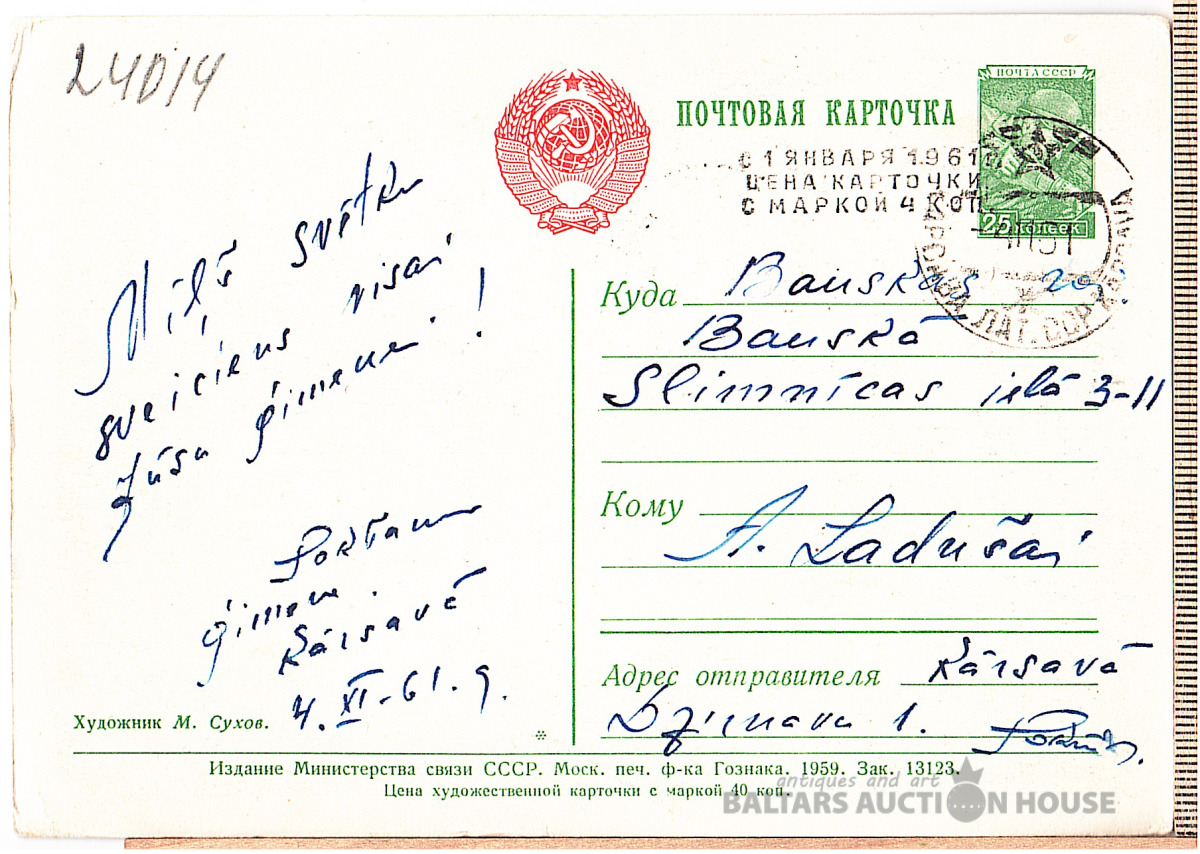 24014
ПОЧТОВАЯ КАРТОЧКА
ПОЧТА СССР
25 копеек
С 1 ЯНВАРЯ 1961
ЦЕНА КАРТОЧКИ
С МАРКОЙ 4 КОП.
ЛАТ. ССР
Mīļš svētku
sveiciens visai
Jūsu ģimenei!
ģimene.
Kārsavā
4. XI-61. g.
Куда Bauskas raj.
Bauskā
Slimnīcas ielā 3-11
Кому
A. Ladušai
Адрес отправителя Kārsavā
Dzirnavu 1.
Художник М. Сухов.
*
Издание Министерства связи СССР. Моск. печ. ф-ка Гознака. 1959. Зак. 13123.
Цена художественной карточки с маркой 40 коп.
antiques and art
BALTARS AUCTION HOUSE